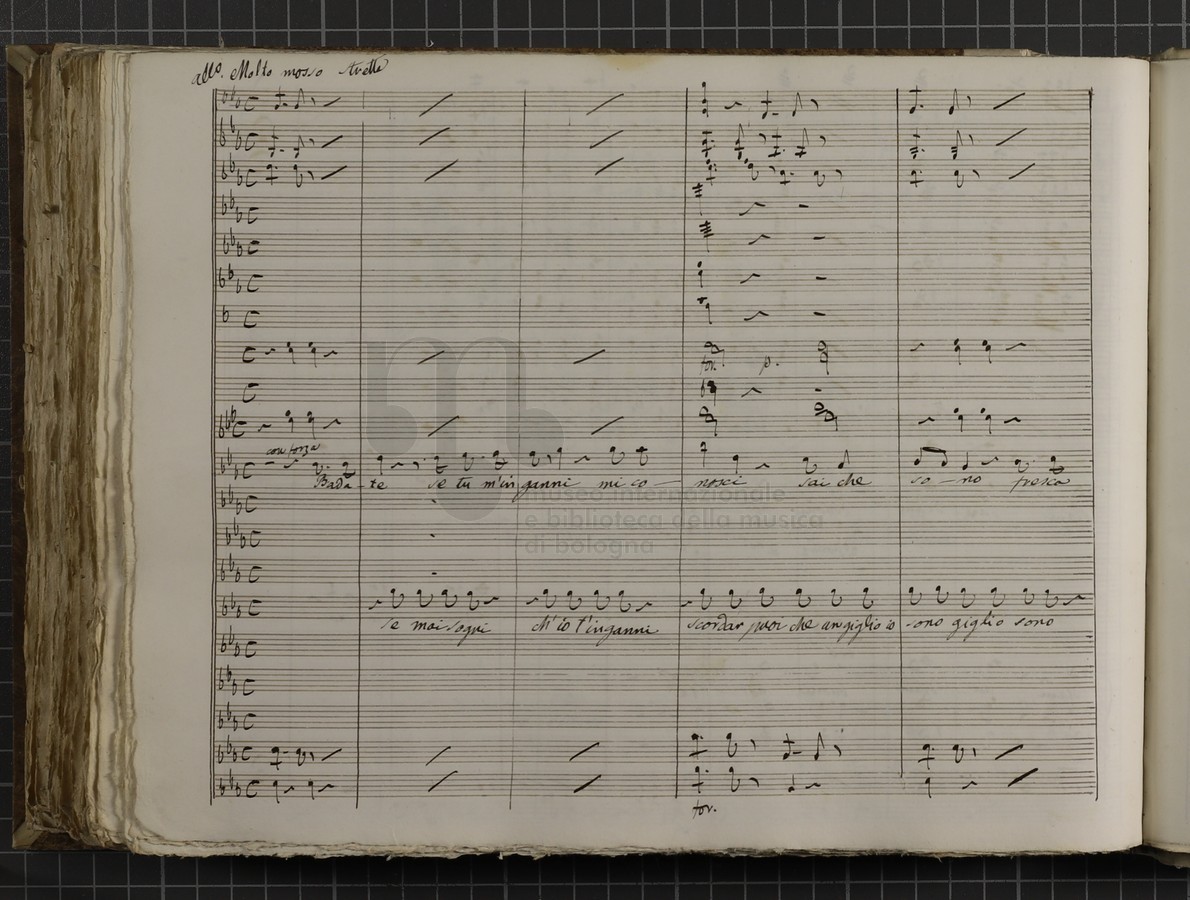 All.o Molto mosso Stretta
for. p.
con forza
Bada - te se tu m'inganni mi co - nosci sai che so - no fresca
museo internazionale
e biblioteca della musica
di bologna
se mai sogni ch'io t'inganni scordar puoi che un giglio io sono giglio sono
for.